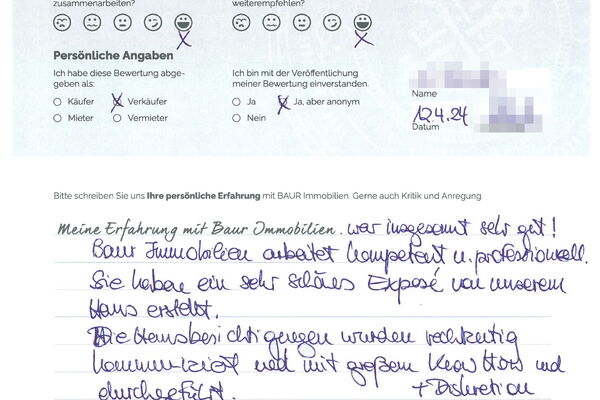 zusammenarbeiten?
weiterempfehlen?
Persönliche Angaben
Ich habe diese Bewertung abge-
geben als:
Käufer
Verkäufer
Mieter
Vermieter
Ich bin mit der Veröffentlichung
meiner Bewertung einverstanden.
Ja
Ja, aber anonym
Nein
Name
12.4.24
Datum
Bitte schreiben Sie uns Ihre persönliche Erfahrung mit BAUR Immobilien. Gerne auch Kritik und Anregung.
Meine Erfahrung mit Baur Immobilien. war insgesamt sehr gut!
Baur Immobilien arbeitet kompetent u. professionell.
Sie haben ein sehr schönes Exposé von unserem
Haus erstellt.
Die Hausbesichtigungen wurden rechtzeitig
kommuniziert und mit großem Know How und
durchgeführt. + Diskretion